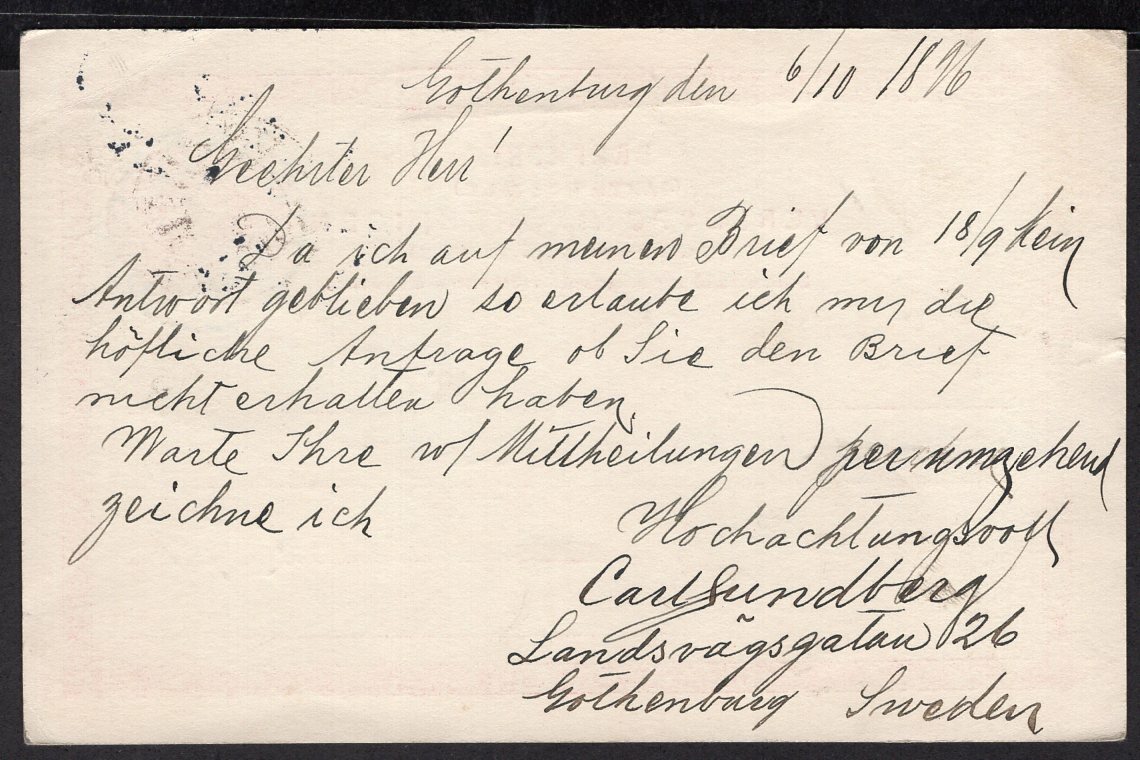 Gothenburg den 6/10 1896
Geehrter Herr!
Da ich auf meinen Brief von 18/9 Kein
Antwort geblieben so erlaube ich mir die
höfliche Anfrage ob Sie den Brief
nicht erhalten haben.
Warte Ihre w/ Mittheilungen per umgehend
zeichne ich
Hochachtungsvoll
Carl Sundberg
Landsvägsgatan 26
Gothenburg Sweden